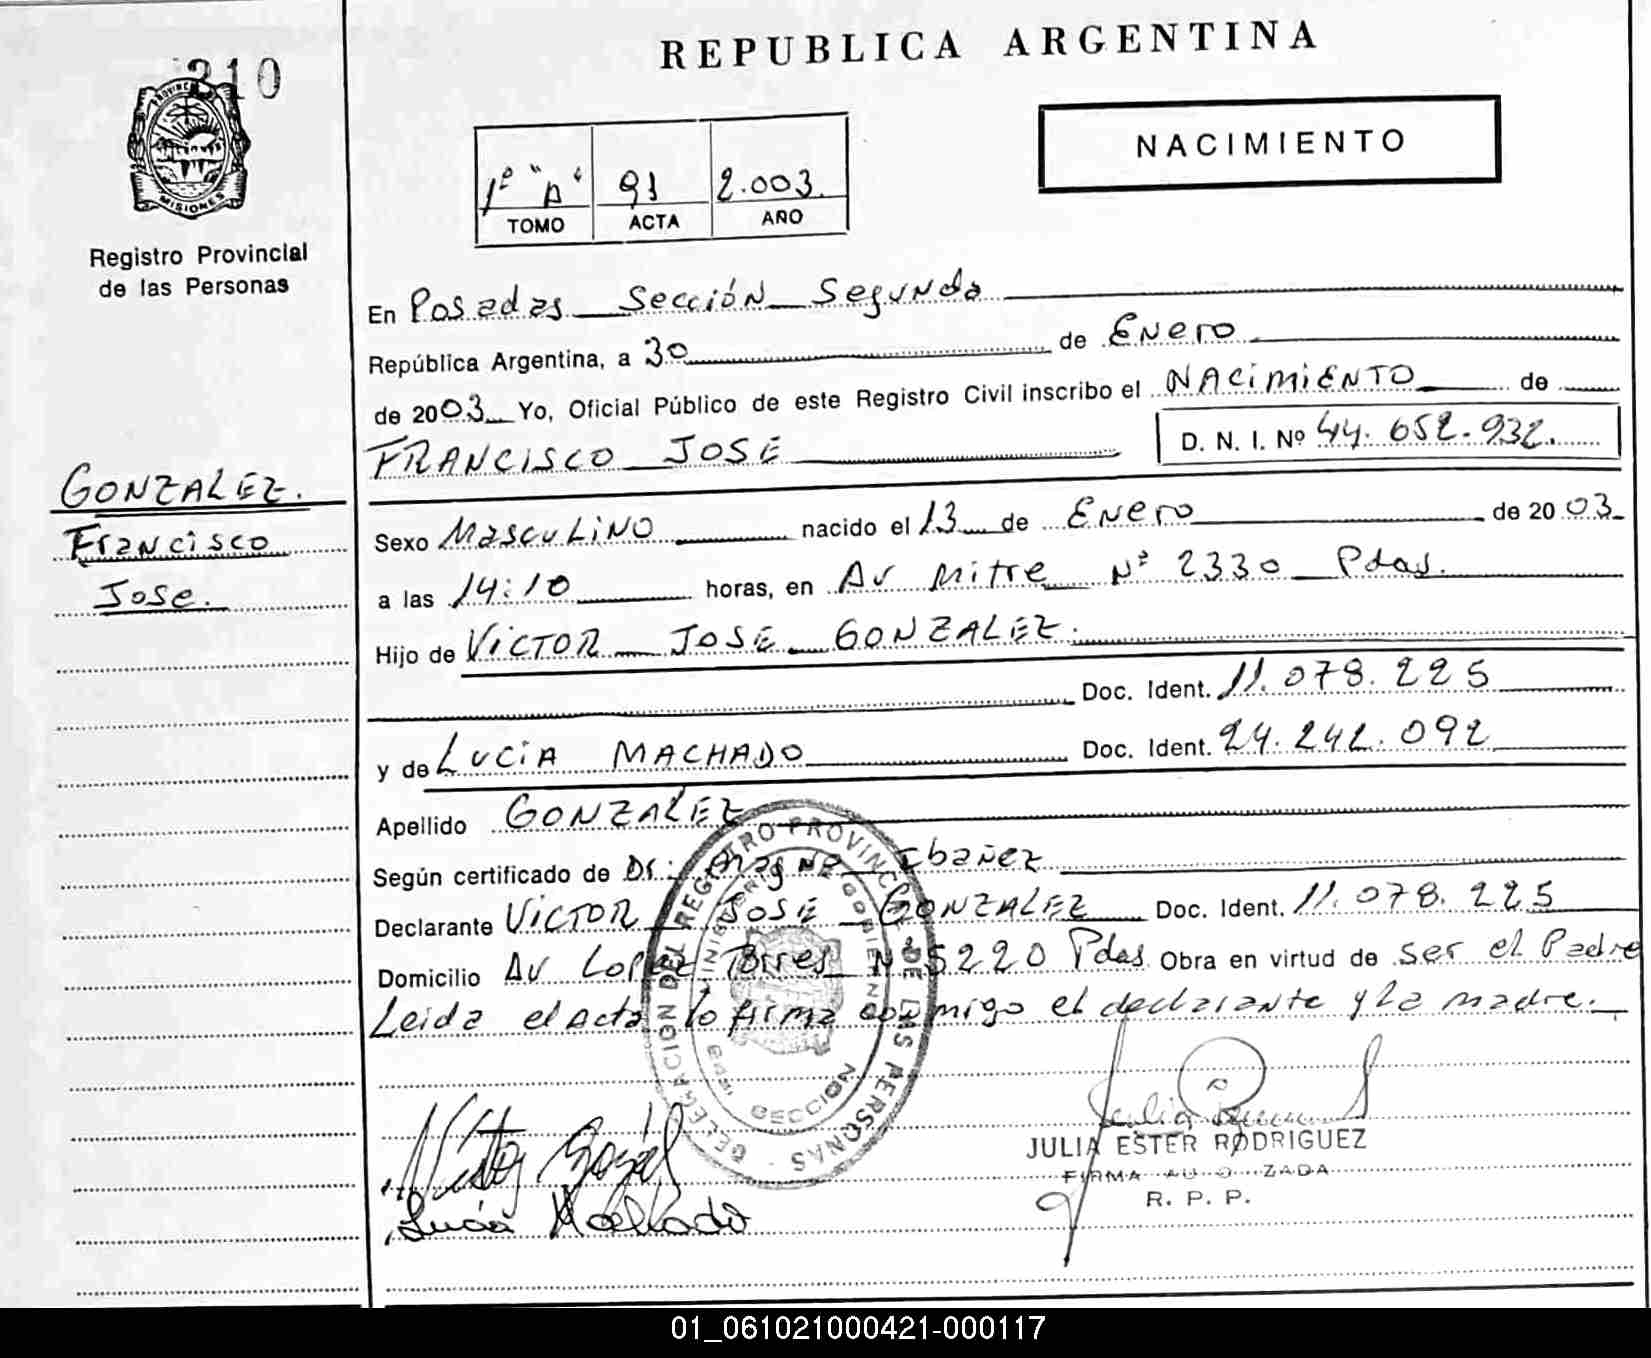 REPUBLICA ARGENTINA
210
PROVINCIA
MISIONES
Registro Provincial
de las Personas
NACIMIENTO
1º "A" 91 2.003.
TOMO ACTA AÑO
En Posadas Sección Segunda
República Argentina, a 30 de Enero
de 2003 Yo, Oficial Público de este Registro Civil inscribo el NACIMIENTO de
FRANCISCO JOSE D. N. I. Nº 44.652.932.
GONZALEZ.
Francisco
Jose.
Sexo Masculino nacido el 13 de Enero de 2003
a las 14:10 horas, en Av Mitre Nº 2330 Pdas.
Hijo de VICTOR JOSE GONZALEZ.
Doc. Ident. 11.078.225
y de LUCIA MACHADO Doc. Ident. 24.242.092
Apellido GONZALEZ
Según certificado de Dr: Ibañez
Declarante VICTOR JOSE GONZALEZ Doc. Ident. 11.078.225
Domicilio Av Lopez Torres Nº 5220 Pdas Obra en virtud de ser el Padre
Leida el Acta lo firma conmigo el declarante y la madre.
DELEGACION DEL REGISTRO PROVINCIAL DE LAS PERSONAS
MINISTERIO DE GOBIERNO
SECCION
JULIA ESTER RODRIGUEZ
FIRMA AU O ZADA
R. P. P.
Lucia Machado
01_061021000421-000117